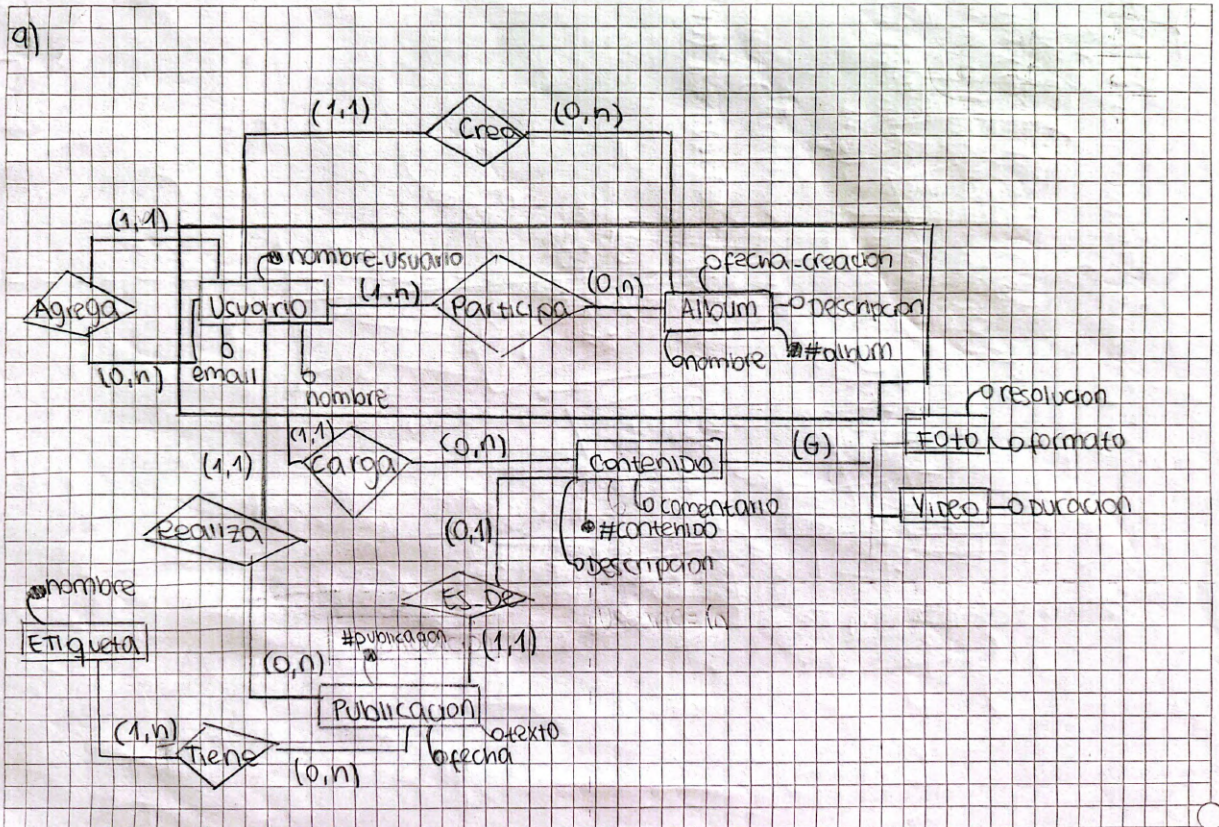 9)
(1,1)
Crea
(0,n)
(1,1)
nombre_usuario
fecha_creacion
Agrega
Usuario
(1,n)
Participa
(0,n)
Album
Descripcion
(0,n)
email
nombre
nombre
#album
resolucion
(1,1)
Carga
(0,n)
Contenido
(G)
Foto
formato
(1,1)
comentario
Video
Duracion
Realiza
(0,1)
#contenido
Descripcion
nombre
ES_DE
Etiqueta
#publicacion
(1,1)
(0,n)
Publicacion
(1,n)
texto
Tiene
(0,n)
fecha